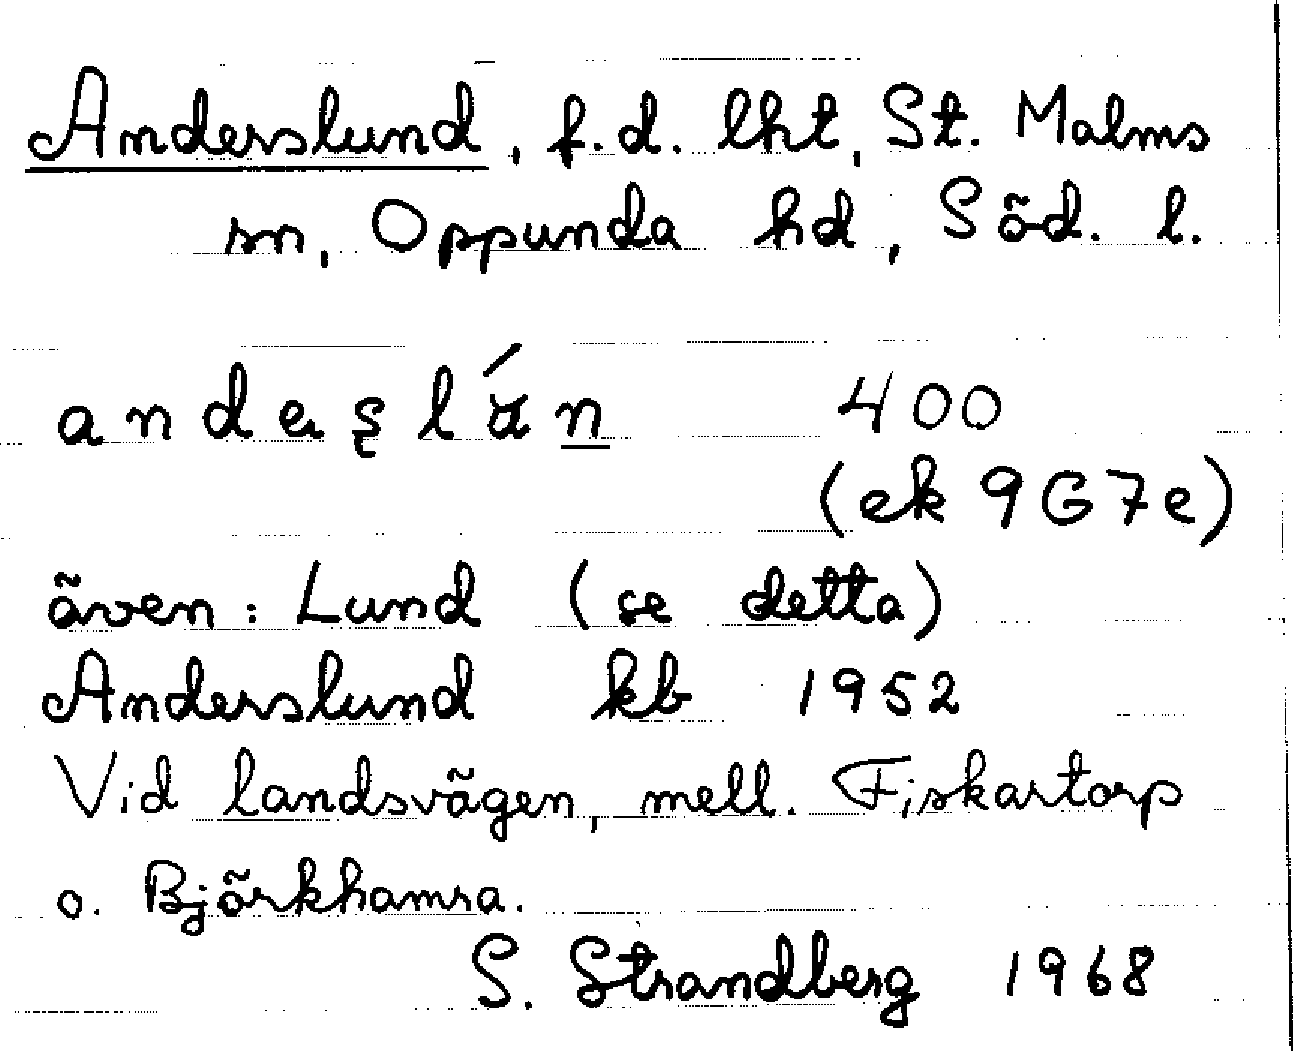 Anderslund, f.d. lht, St. Malms
sn, Oppunda hd, Söd. l.
400
(ek 9G7e)
även: Lund (se detta)
Anderslund kb 1952
Vid landsvägen, mell. Fiskartorp
o. Björkhamra.
S. Strandberg 1968